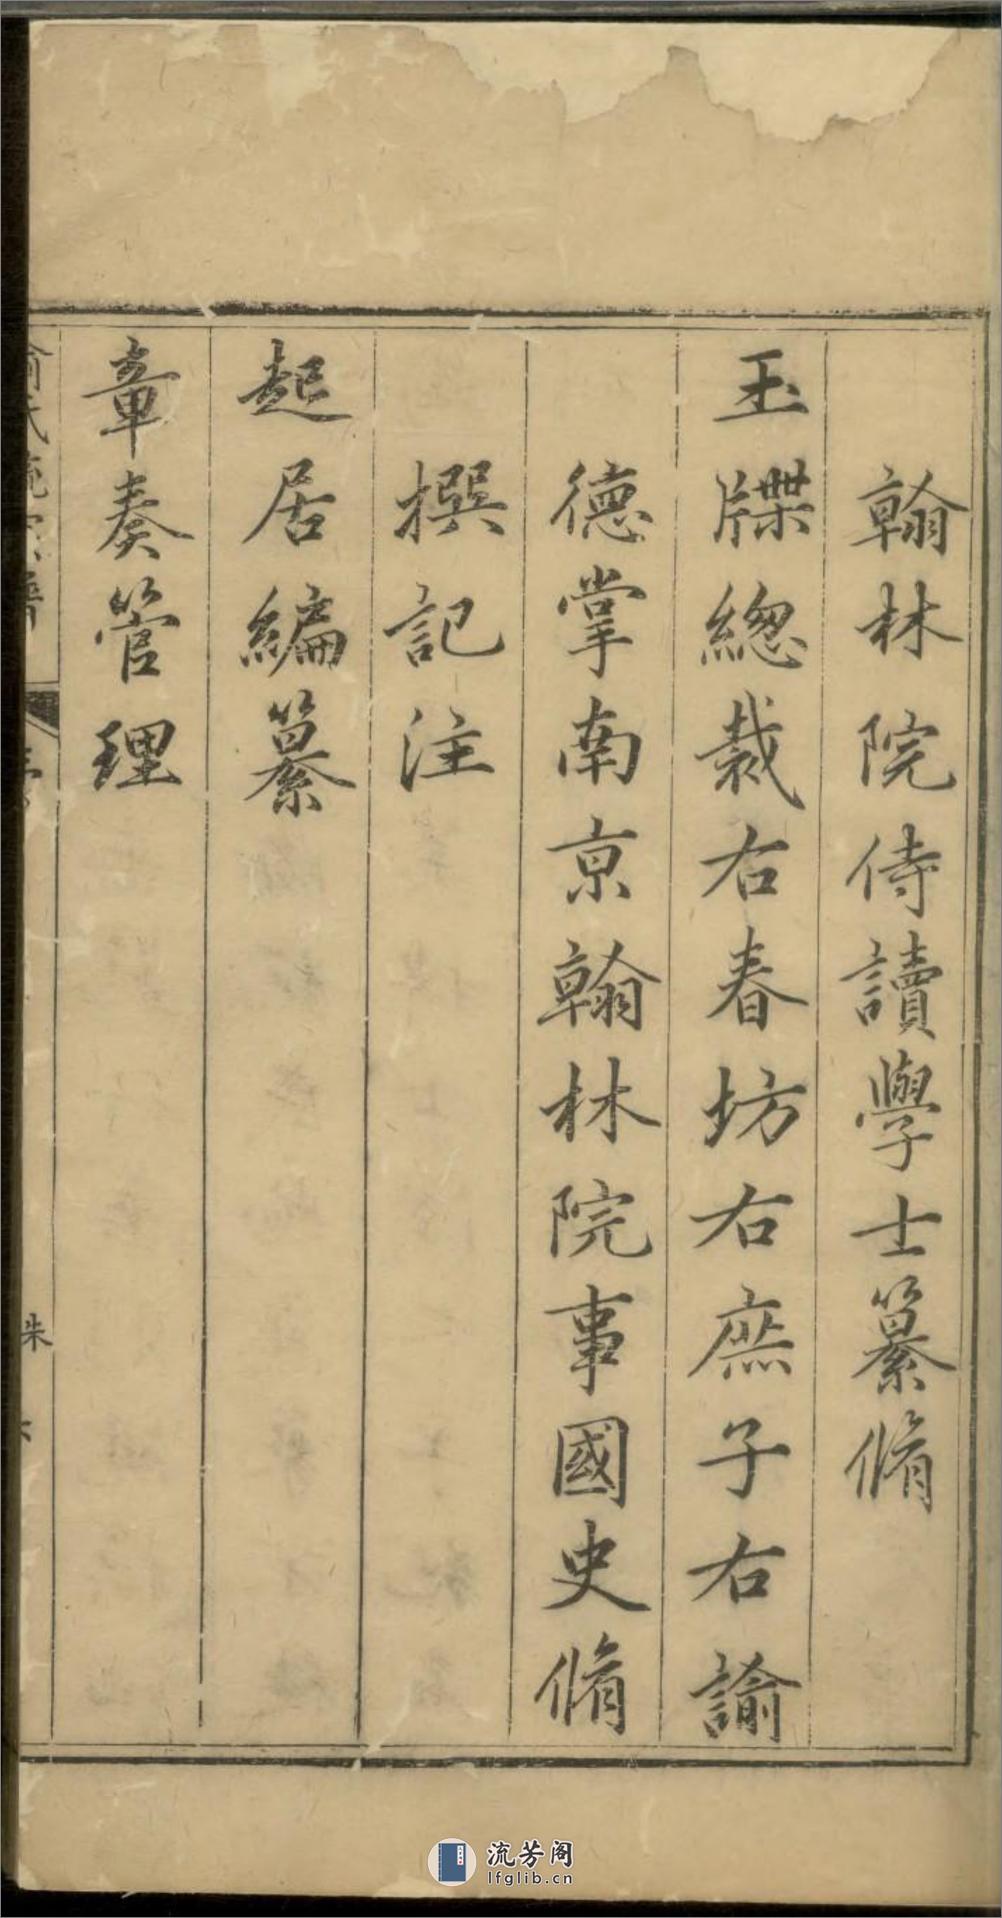 翰林院侍讀學士纂脩
玉牒總裁右春坊右庶子右諭
德掌南京翰林院事國史脩
撰記注
起居編纂
章奏管理
朱
流芳阁
lfglib.cn